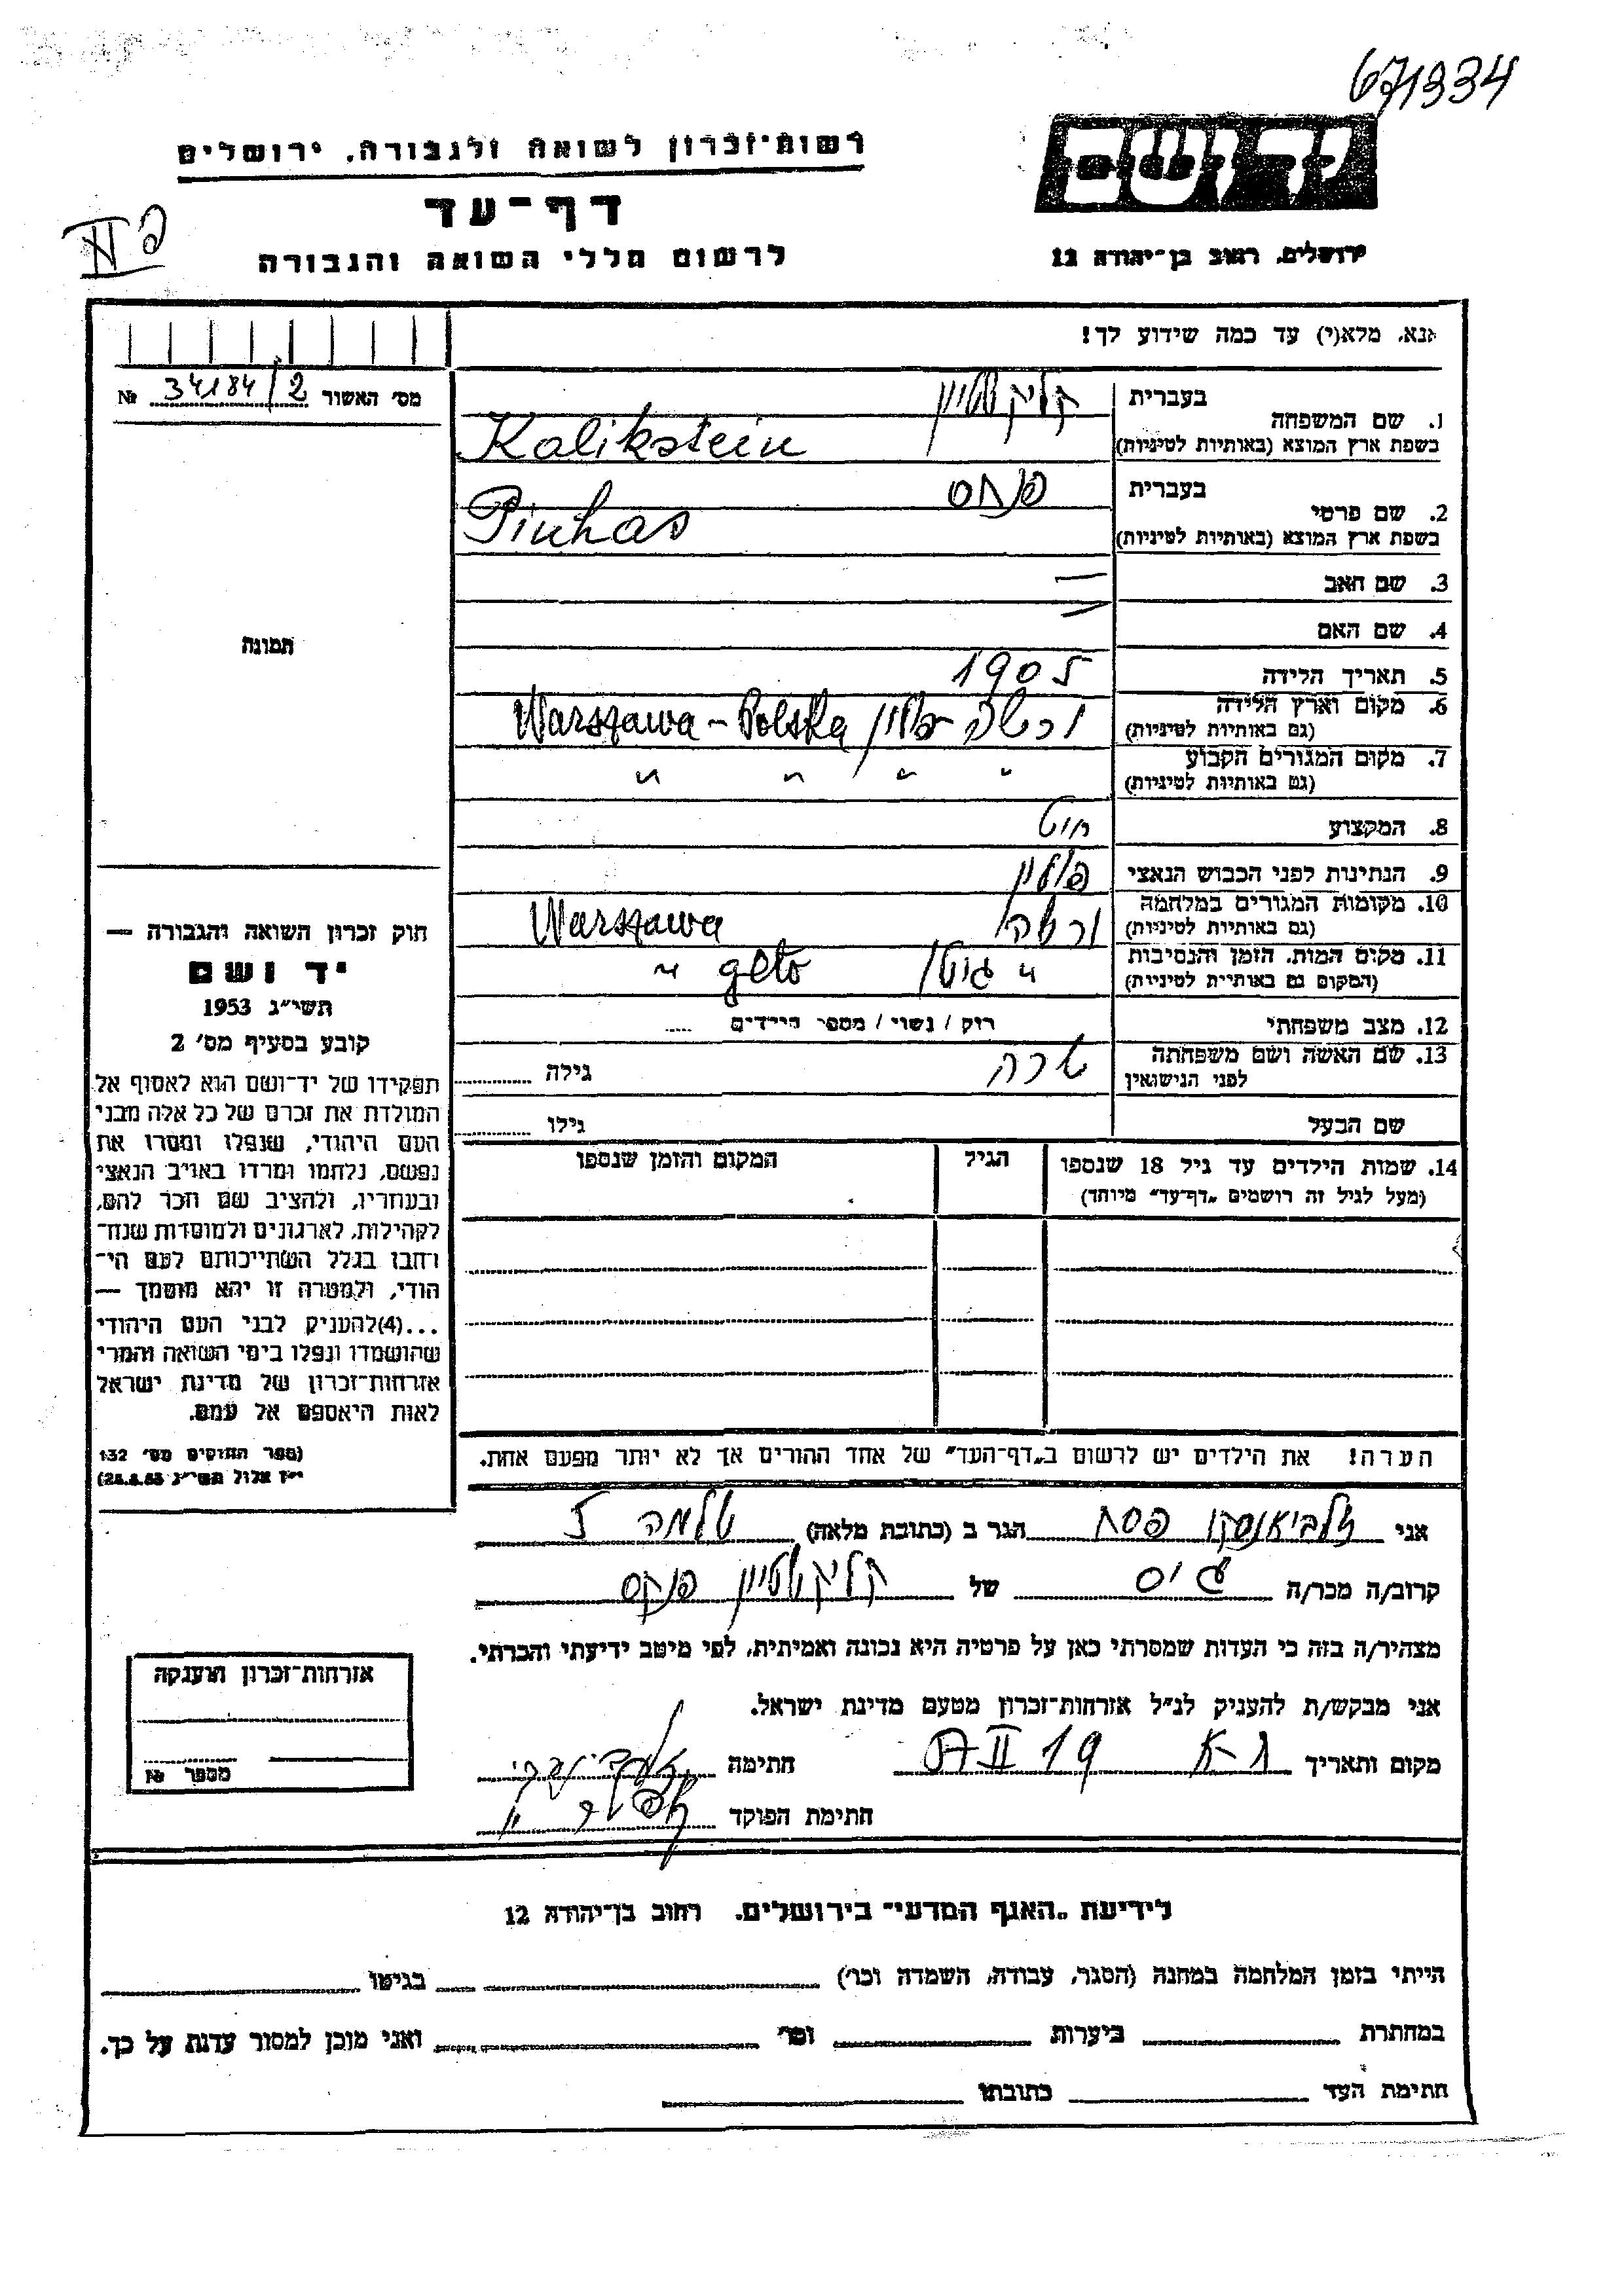 671334
יד ושם
ירושלים, רחוב בן־יהודה 12
רשות־זכרון לשואה ולגבורה, ירושלים
דף־עד
לרשום חללי השואה והגבורה
אנא, מלא(י) עד כמה שידוע לך!
מס׳ האשור 34184/2 №
תמונה
1. שם המשפחה
בעברית קליקשטיין
בשפת ארץ המוצא (באותיות לטיניות) Kalikstein
2. שם פרטי
בעברית פנחס
בשפת ארץ המוצא (באותיות לטיניות) Pinhas
3. שם האב —
4. שם האם —
5. תאריך הלידה 1905
6. מקום וארץ הלידה ורשה פולין Warszawa – Polska
(גם באותיות לטיניות)
7. מקום המגורים הקבוע " " " "
(גם באותיות לטיניות)
8. המקצוע חיט
9. הנתינות לפני הכבוש הנאצי פולין
10. מקומות המגורים במלחמה ורשה Warszawa
(גם באותיות לטיניות)
11. מקום המות, הזמן והנסיבות " גיטו geto "
(המקום גם באותיות לטיניות)
12. מצב משפחתי רוק / נשוי / מספר הילדים .....
13. שם האשה ושם משפחתה שרה גילה
לפני הנישואין
שם הבעל גילו
14. שמות הילדים עד גיל 18 שנספו הגיל המקום והזמן שנספו
(מעל לגיל זה רושמים „דף־עד״ מיוחד)
הערה! את הילדים יש לרשום ב„דף־העד״ של אחד ההורים אך לא יותר מפעם אחת.
חוק זכרון השואה והגבורה —
יד ושם
תשי״ג 1953
קובע בסעיף מס׳ 2
תפקידו של יד־ושם הוא לאסוף אל
המולדת את זכרם של כל אלה מבני
העם היהודי, שנפלו ומסרו את
נפשם, נלחמו ומרדו באויב הנאצי
ובעוזריו, ולהציב שם וזכר להם,
לקהילות, לארגונים ולמוסדות שנח־
רחבו בגלל השתייכותם לעם הי־
הודי, ולמטרה זו יהא מוסמך —
...(4)להעניק לבני העם היהודי
שהושמדו ונפלו בימי השואה והמרי
אזרחות־זכרון של מדינת ישראל
לאות היאספם אל עמם.
(ספר החוקים מס׳ 132
י״ז אלול תשי״ג 28.8.53)
אני פסח הגר ב (כתובת מלאה) שלמה 5
קרוב/ה מכר/ה גיס של קליקשטיין פנחס
מצהיר/ה בזה כי העדות שמסרתי כאן על פרטיה היא נכונה ואמיתית, לפי מיטב ידיעתי והכרתי.
אני מבקש/ת להעניק לנ״ל אזרחות־זכרון מטעם מדינת ישראל.
מקום ותאריך חתימה
חתימת הפוקד
אזרחות־זכרון הוענקה
מספר №
לידיעת „האגף המדעי״ בירושלים, רחוב בן־יהודה 12
הייתי בזמן המלחמה במחנה (הסגר, עבודה, השמדה וכו׳) בגיטו
במחתרת ביערות וכו׳ ואני מוכן למסור עדות על כך.
חתימת העד כתובתו